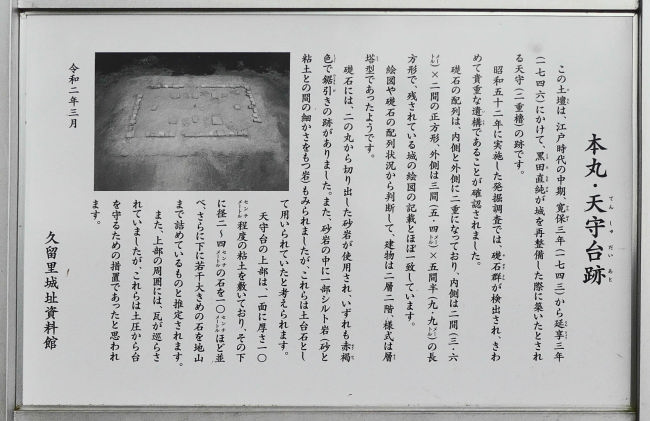 本丸・天守台跡
この土壇は、江戸時代の中期、寛保三年(一七四三)から延享三年
(一七四六)にかけて、黒田直純が城を再整備した際に築いたとされ
る天守(二重櫓)の跡です。
昭和五十二年に実施した発掘調査では、礎石群が検出され、きわ
めて貴重な遺構であることが確認されました。
礎石の配列は、内側と外側に二重になっており、内側は二間(三・六
メートル)×二間の正方形、外側は三間(五・四メートル)×五間半(九・九メートル)の長
方形で、残されている城の絵図の記載とほぼ一致しています。
絵図や礎石の配列状況から判断して、建物は二層二階、様式は層
塔型であったようです。
礎石には、二の丸から切り出した砂岩が使用され、いずれも赤褐
色で鋸引きの跡がありました。また、砂岩の中に一部シルト岩(砂と
粘土との間の細かさをもつ岩)もみられましたが、これらは土台石とし
て用いられていたと考えられます。
天守台の上部は、一面に厚さ一〇
センチメートル程度の粘土を敷いており、その下
に径二〜四センチメートルの石を一〇センチメートルほど並
べ、さらに下に若干大きめの石を地山
まで詰めているものと推定されます。
また、上部の周囲には、瓦が巡らさ
れていましたが、これらは土圧から台
を守るための措置であったと思われ
ます。
令和二年三月
久留里城址資料館